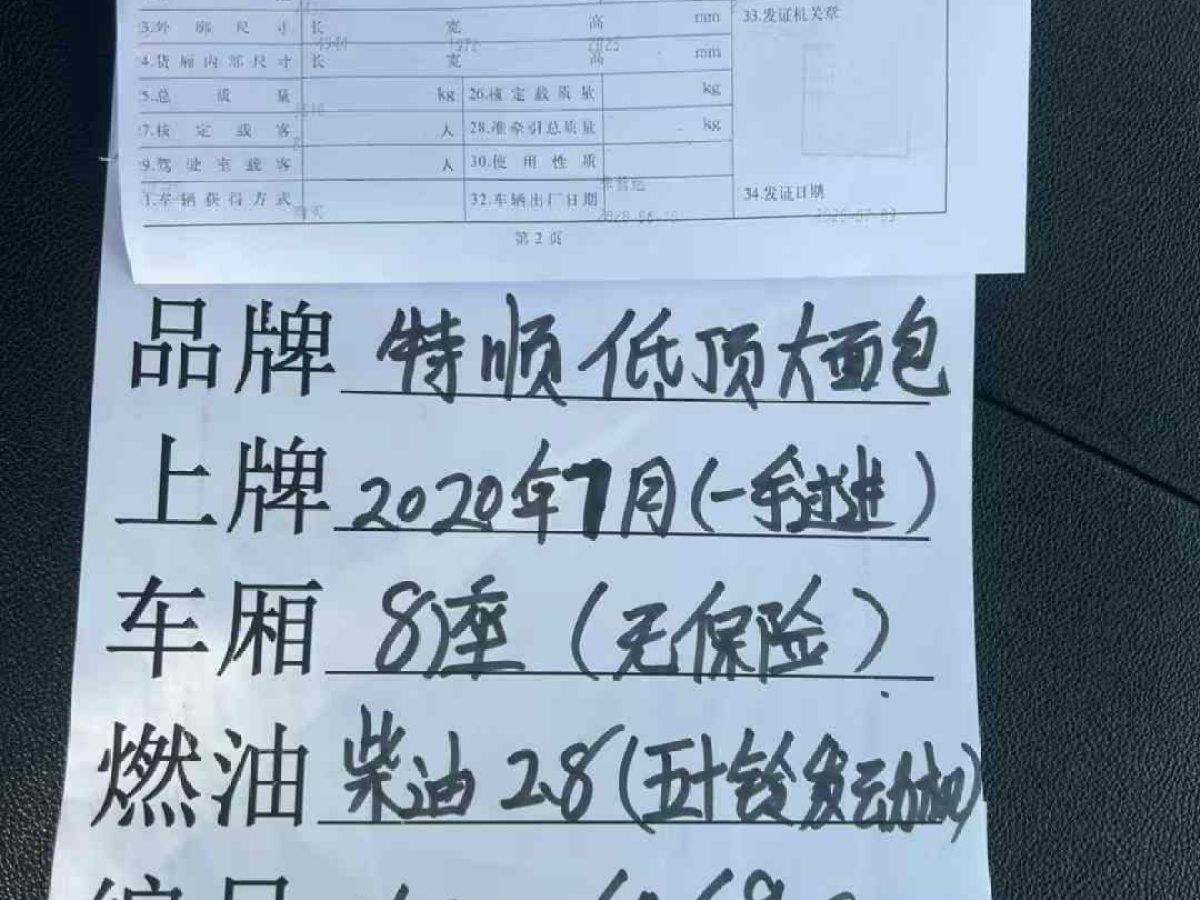 3.外廓尺寸 长 宽 高 mm 33.发证机关章
4944 1972 2025
4.货厢内部尺寸 长 宽 高 mm
5.总质量 kg 26.核定载质量 kg
7.核定载客 人 28.准牵引总质量 kg
9.驾驶室载客 人 30.使用性质
1.车辆获得方式 购买 32.车辆出厂日期 34.发证日期 2020-07-03
第 2 页
品牌 特顺低顶大面包
上牌 2020年7月(一手过进)
车厢 8座(无保险)
燃油 柴油2.8(五十铃发动机)